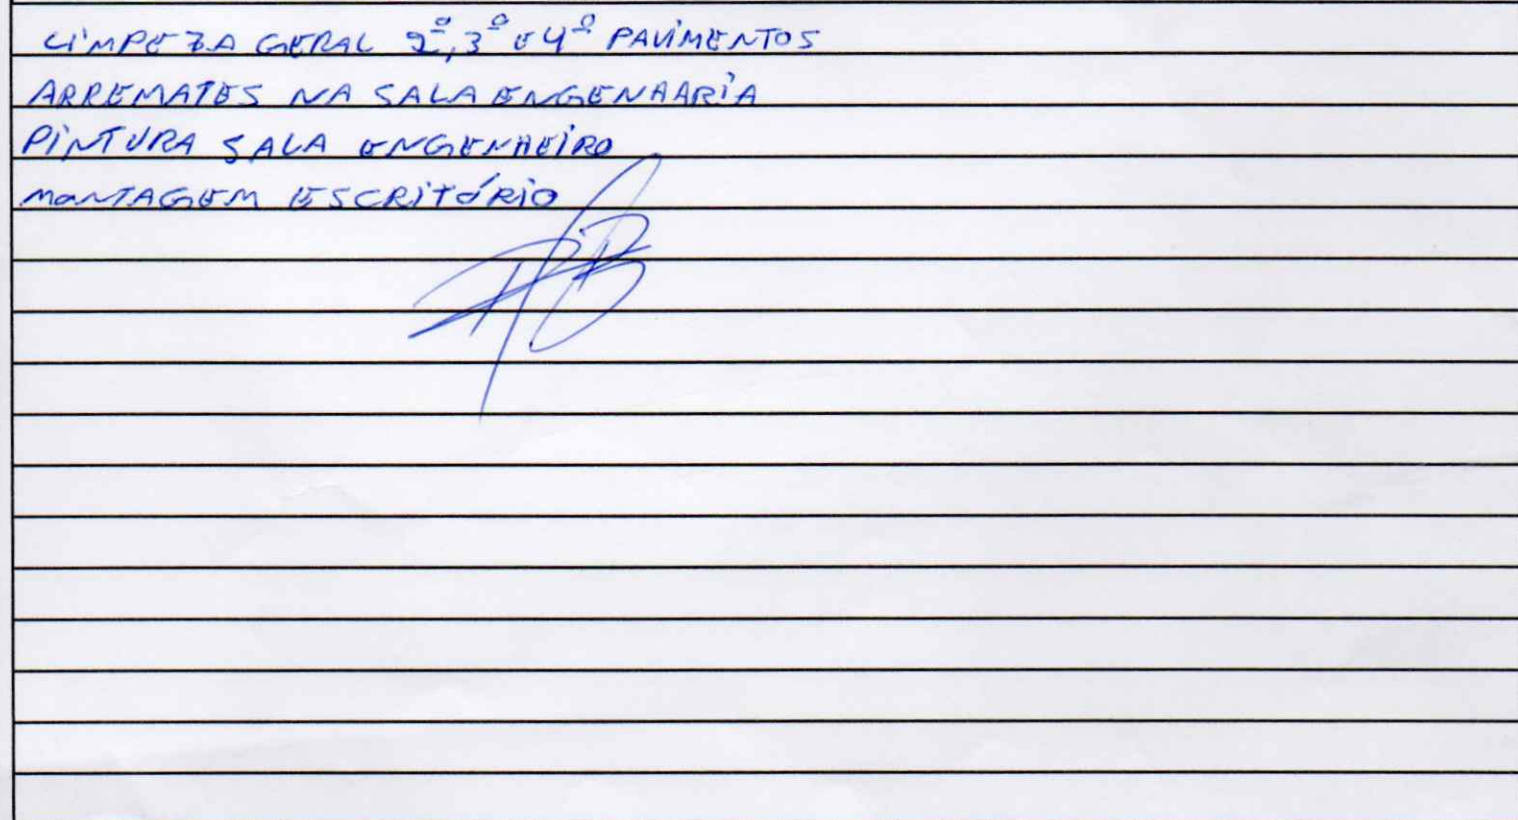 LIMPEZA GERAL 2º, 3º E 4º PAVIMENTOS
ARREMATES NA SALA ENGENHARIA
PINTURA SALA ENGENHEIRO
MONTAGEM ESCRITÓRIO